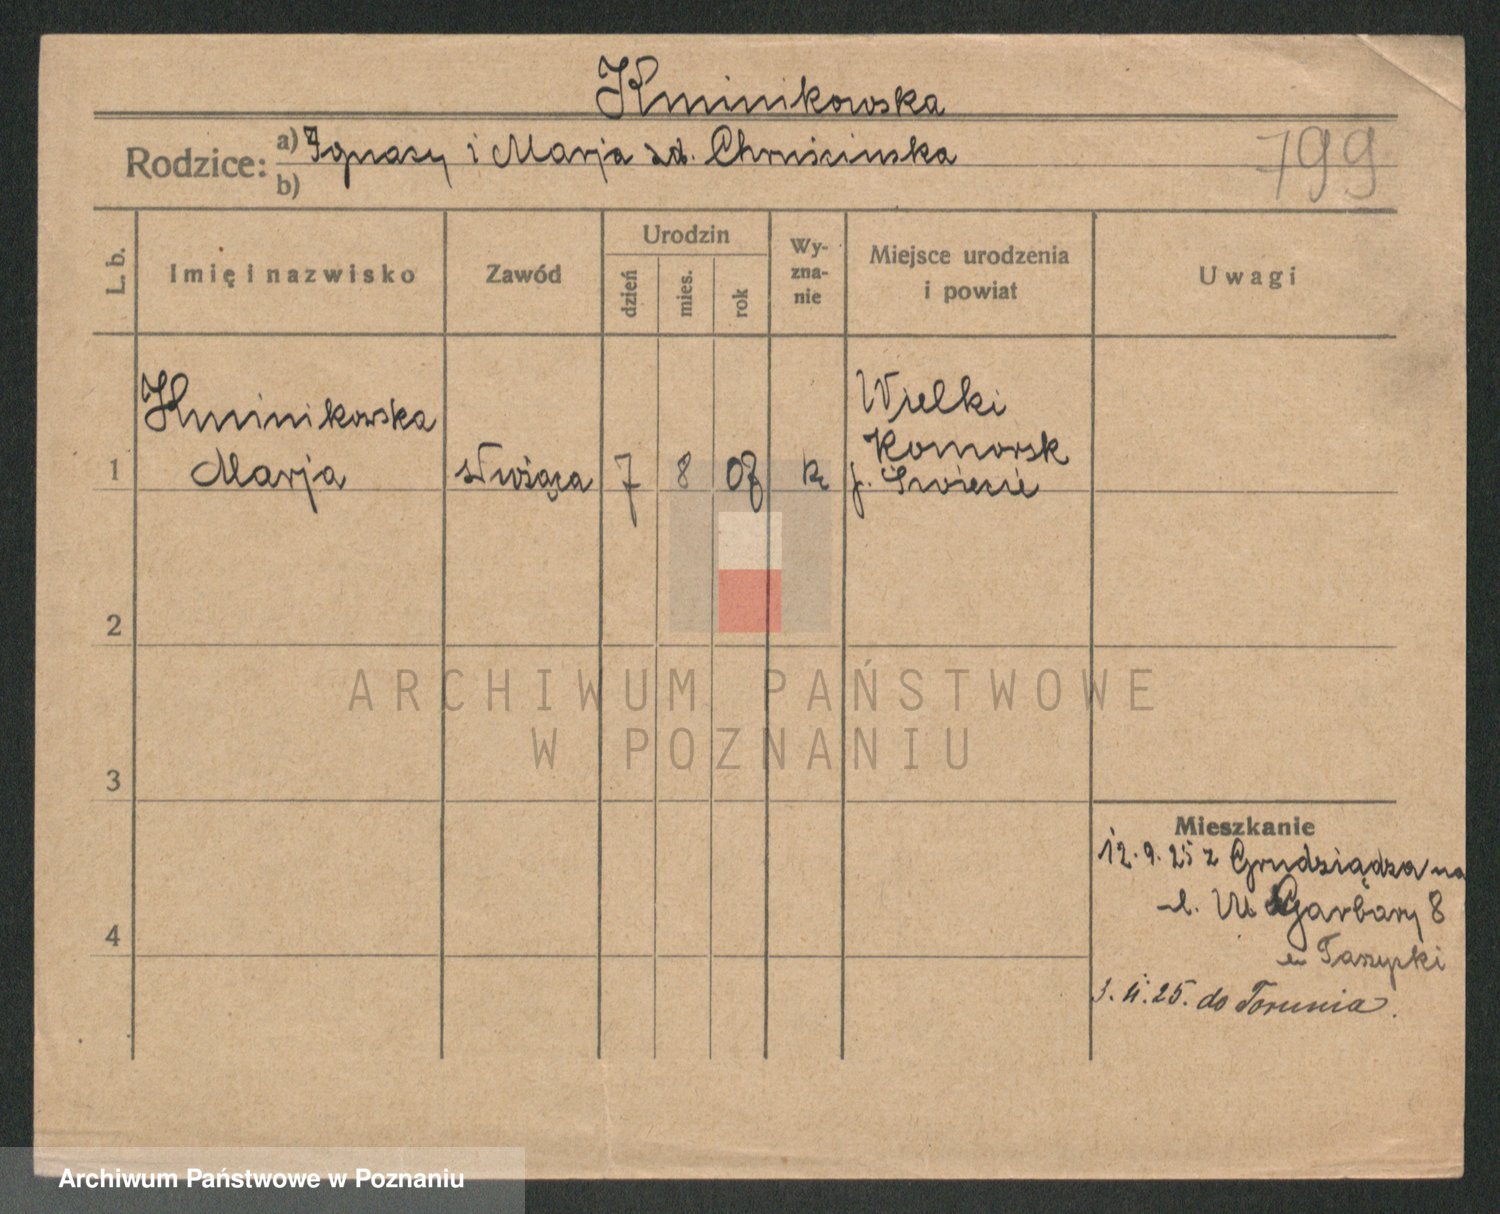 Kminikowska
Rodzice: a) Ignacy i Marja zd. Chruścińska
b)
799
L. b.
Imię i nazwisko
Zawód
Urodzin
dzień
mies.
rok
Wy-
zna-
nie
Miejsce urodzenia
i powiat
Uwagi
Kminikowska
Wielki
Komorsk
1 Marja służąca 7 8 07 k p. Świecie
2
3
4
ARCHIWUM PAŃSTWOWE
W POZNANIU
Mieszkanie
12.9.25 z Grudziądza na
Garbary 8
3.11.25. do Torunia.
Archiwum Państwowe w Poznaniu